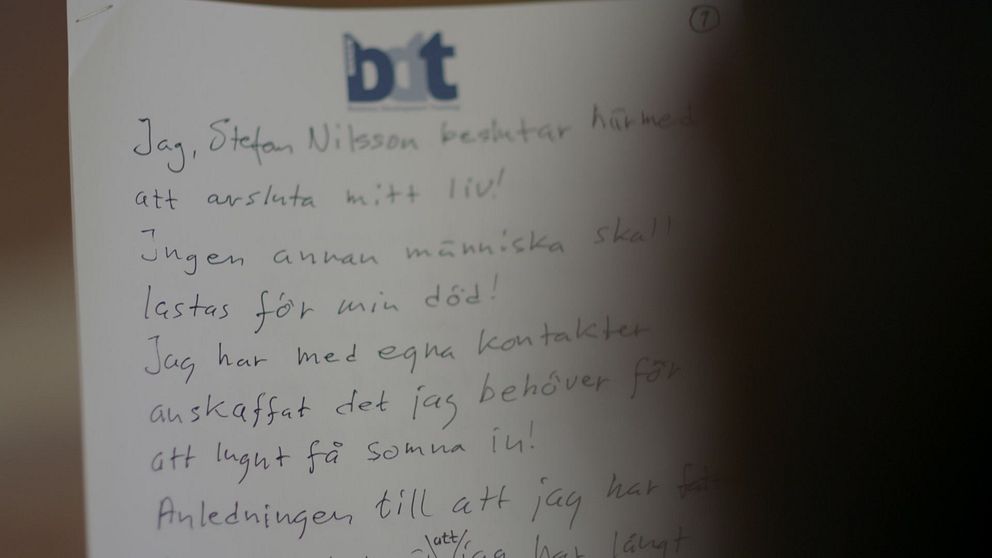 1
bdt
Jag, Stefan Nilsson beslutar härmed
att avsluta mitt liv!
Ingen annan människa skall
lastas för min död!
Jag har med egna kontakter
anskaffat det jag behöver för
att lugnt få somna in!
Anledningen till att jag har
att jag har långt